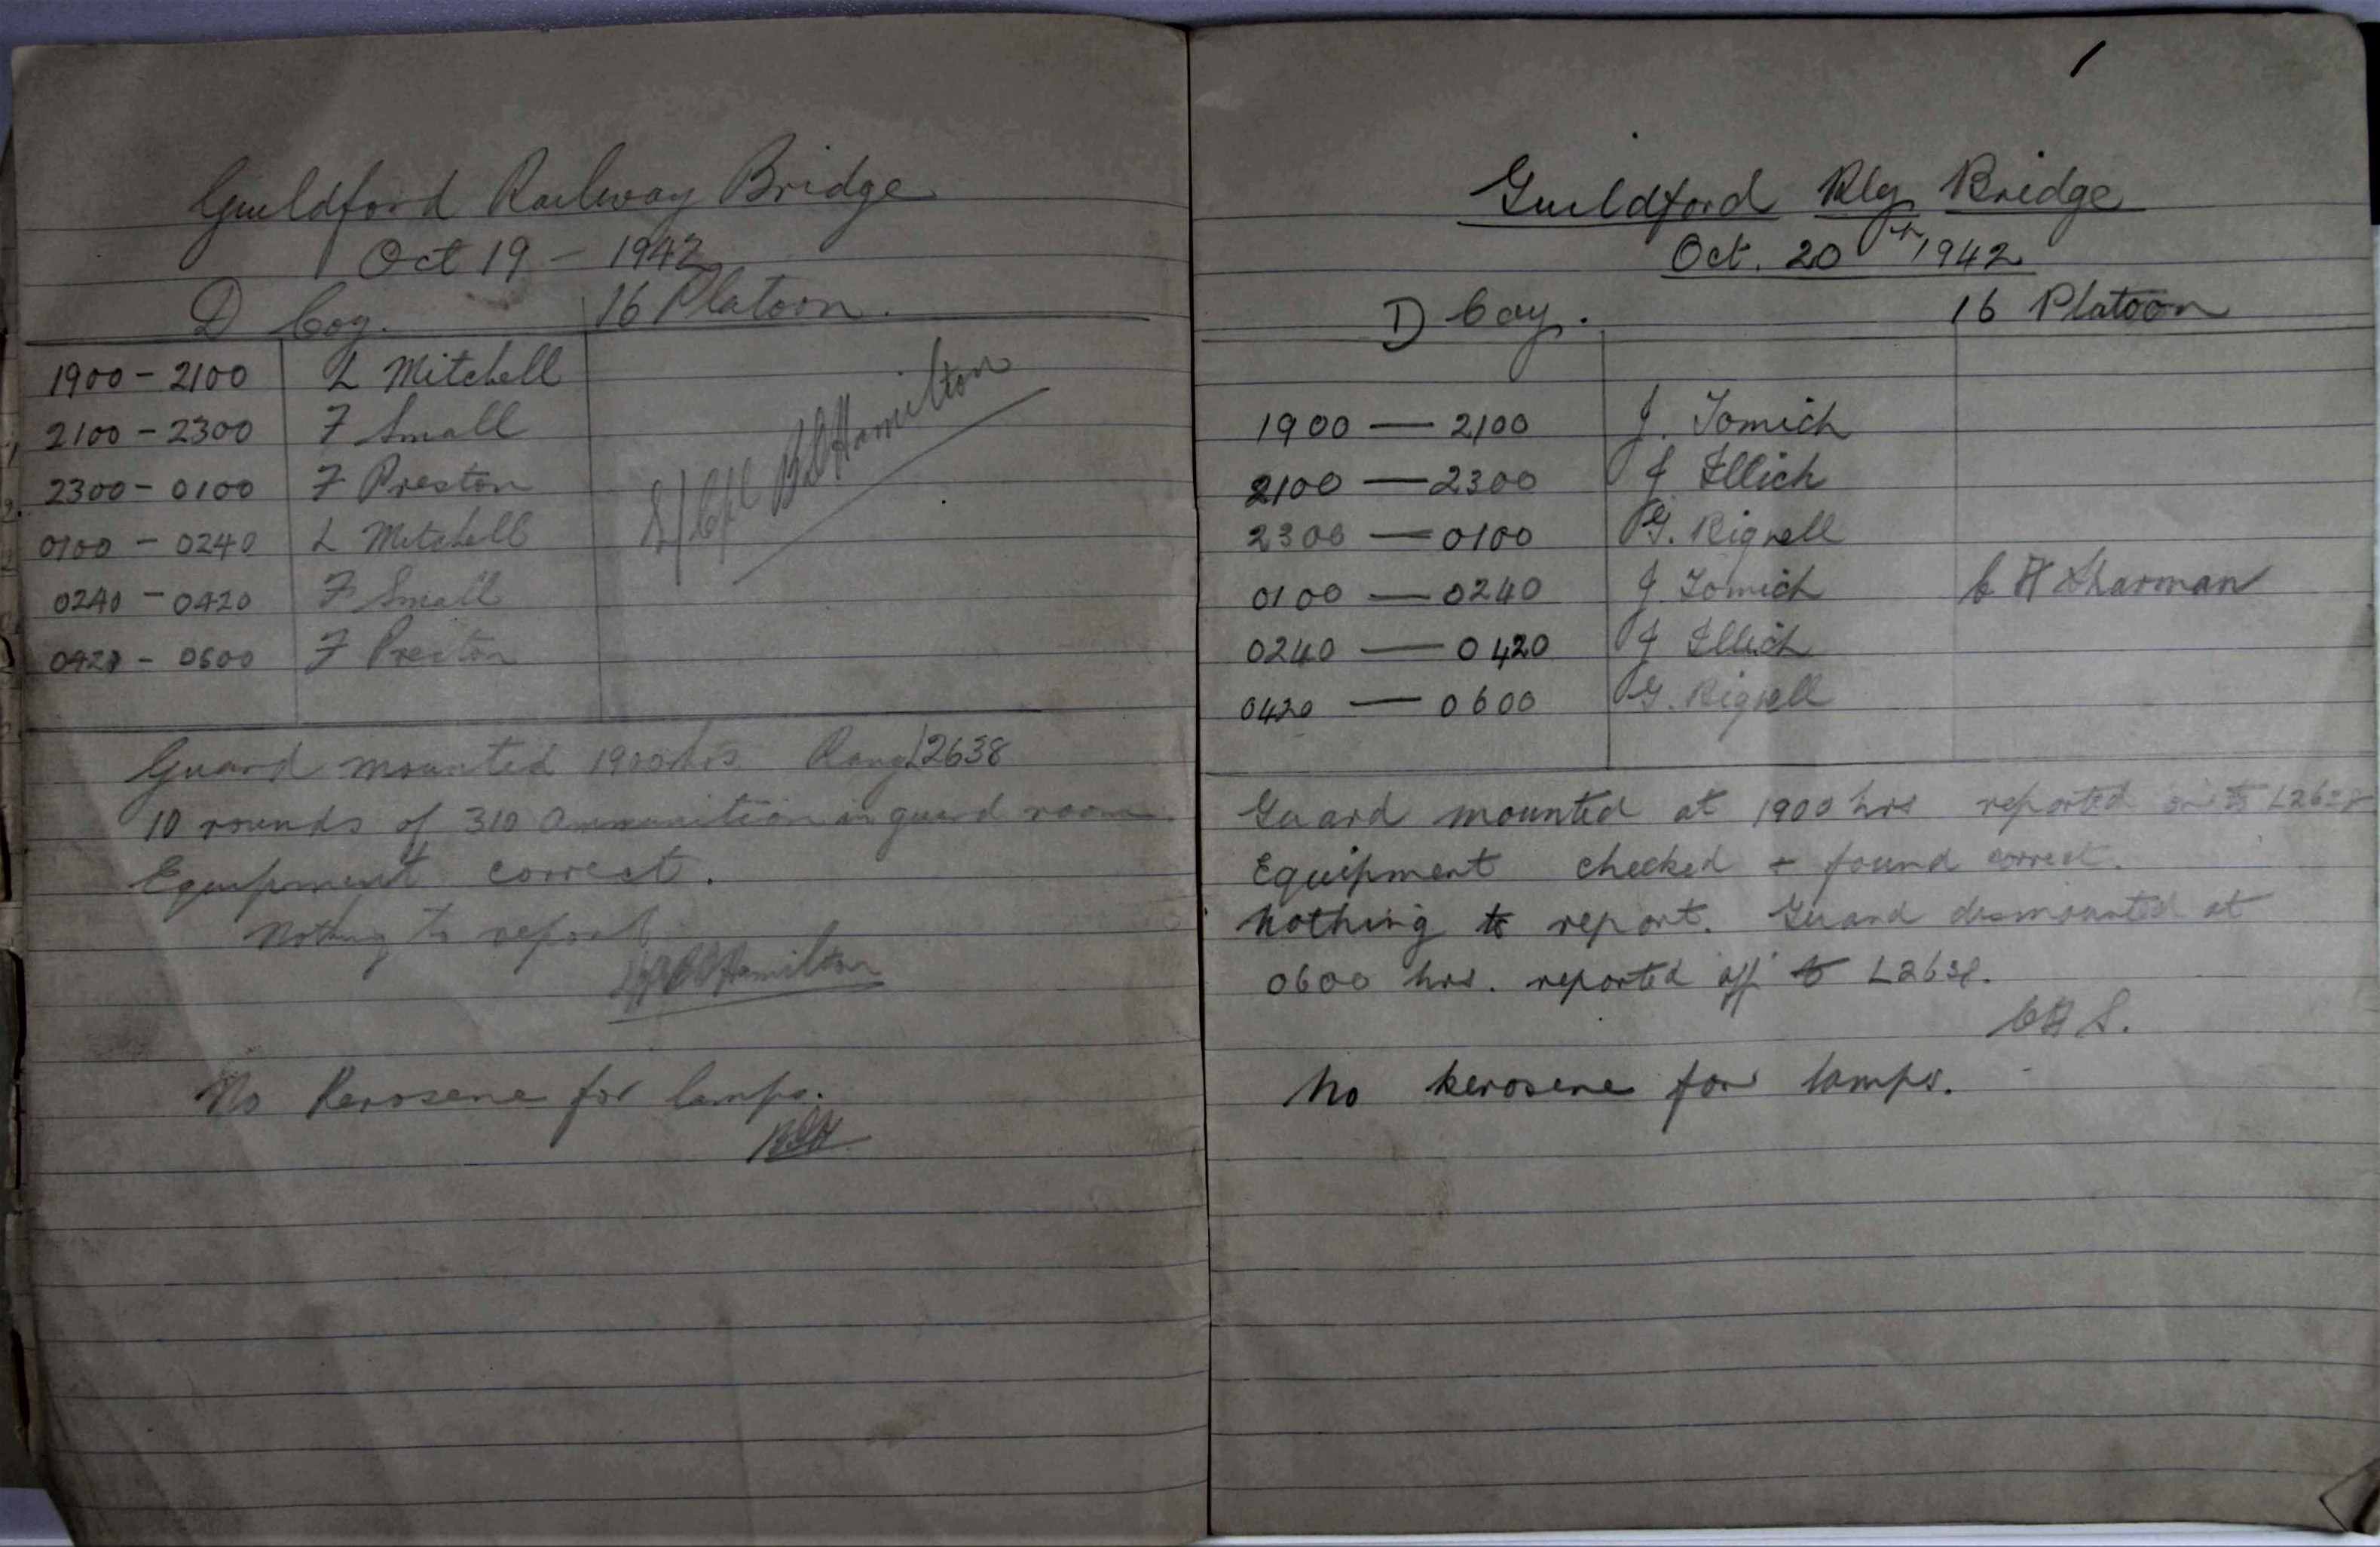 Guildford Railway Bridge
Oct 19 - 1942
D Coy. 16 Platoon.
1900 - 2100 L Mitchell
2100 - 2300 F Small
2300 - 0100 F Preston
0100 - 0240 L Mitchell
0240 - 0420 F Small
0420 - 0600 F Preston
L/Cpl B D Hamilton
Guard mounted 1900 hrs Rang L2638
10 rounds of 310 Ammunition in guard room.
Equipment correct.
Nothing to report
Hamilton
No Kerosene for lamps.
1
Guildford Rly Bridge
Oct. 20th 1942
D Coy. 16 Platoon
1900 — 2100 J. Tomich
2100 — 2300 J Illich
2300 — 0100 G. Rignell
0100 — 0240 J Tomich C H Sharman
0240 — 0420 J Illich
0420 — 0600 G. Rignell
Guard mounted at 1900 hrs reported on to L2638
Equipment checked + found correct.
Nothing to report. Guard dismounted at
0600 hrs. reported off to L2638.
C H S.
No kerosene for lamps.